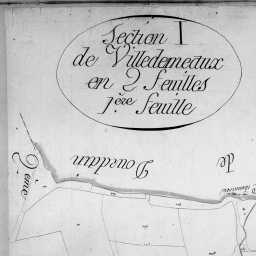 Section I
de Villedemeaux
en 2 feuilles
1.ère feuille
de
Dourdain